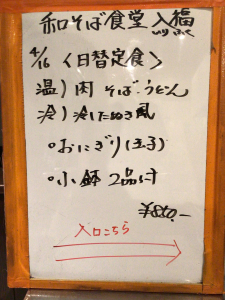 和そば食堂 入福
4/16 〈日替定食〉
温) 肉 そば・うどん
冷) 冷したぬき風
○おにぎり(玉子)
○小鉢 2品付
¥850.-
入口こちら